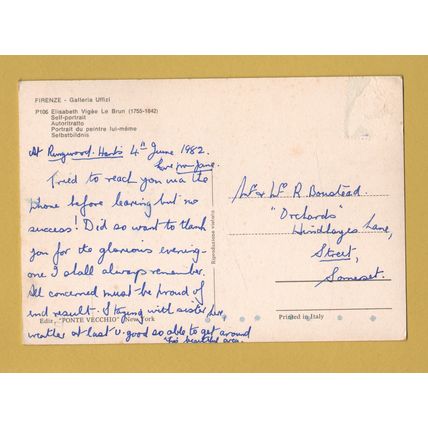 FIRENZE - Galleria Uffizi
P106 Elisabeth Vigée Le Brun (1755-1842)
Self-portrait
Autoritratto
Portrait du peintre lui-même
Selbstbildnis
At Ringwood. Hants 4th June 1982.
Love from Jane.
Tried to reach you via the
phone before leaving but no
success! Did so want to thank
you for the glorious evening -
one I shall always remember.
All concerned must be proud of
end result. Staying with sister here,
weather at last v. good so able to get around
this beautiful area.
Edit. "PONTE VECCHIO" New York
Riproduzione vietata
R. Boustead.
"Orchards"
Hindhayes Lane,
Street,
Somerset.
Printed in Italy